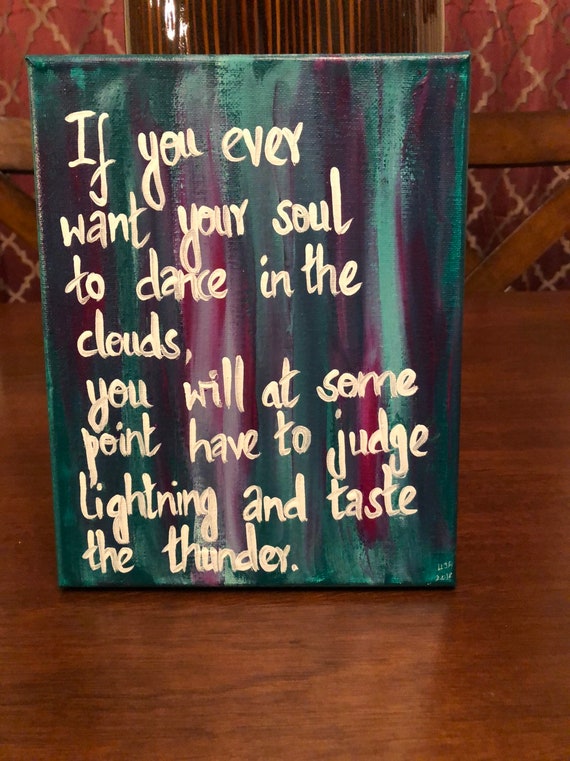 If you ever
want your soul
to dance in the
clouds,
you will at some
point have to judge
lightning and taste
the thunder.